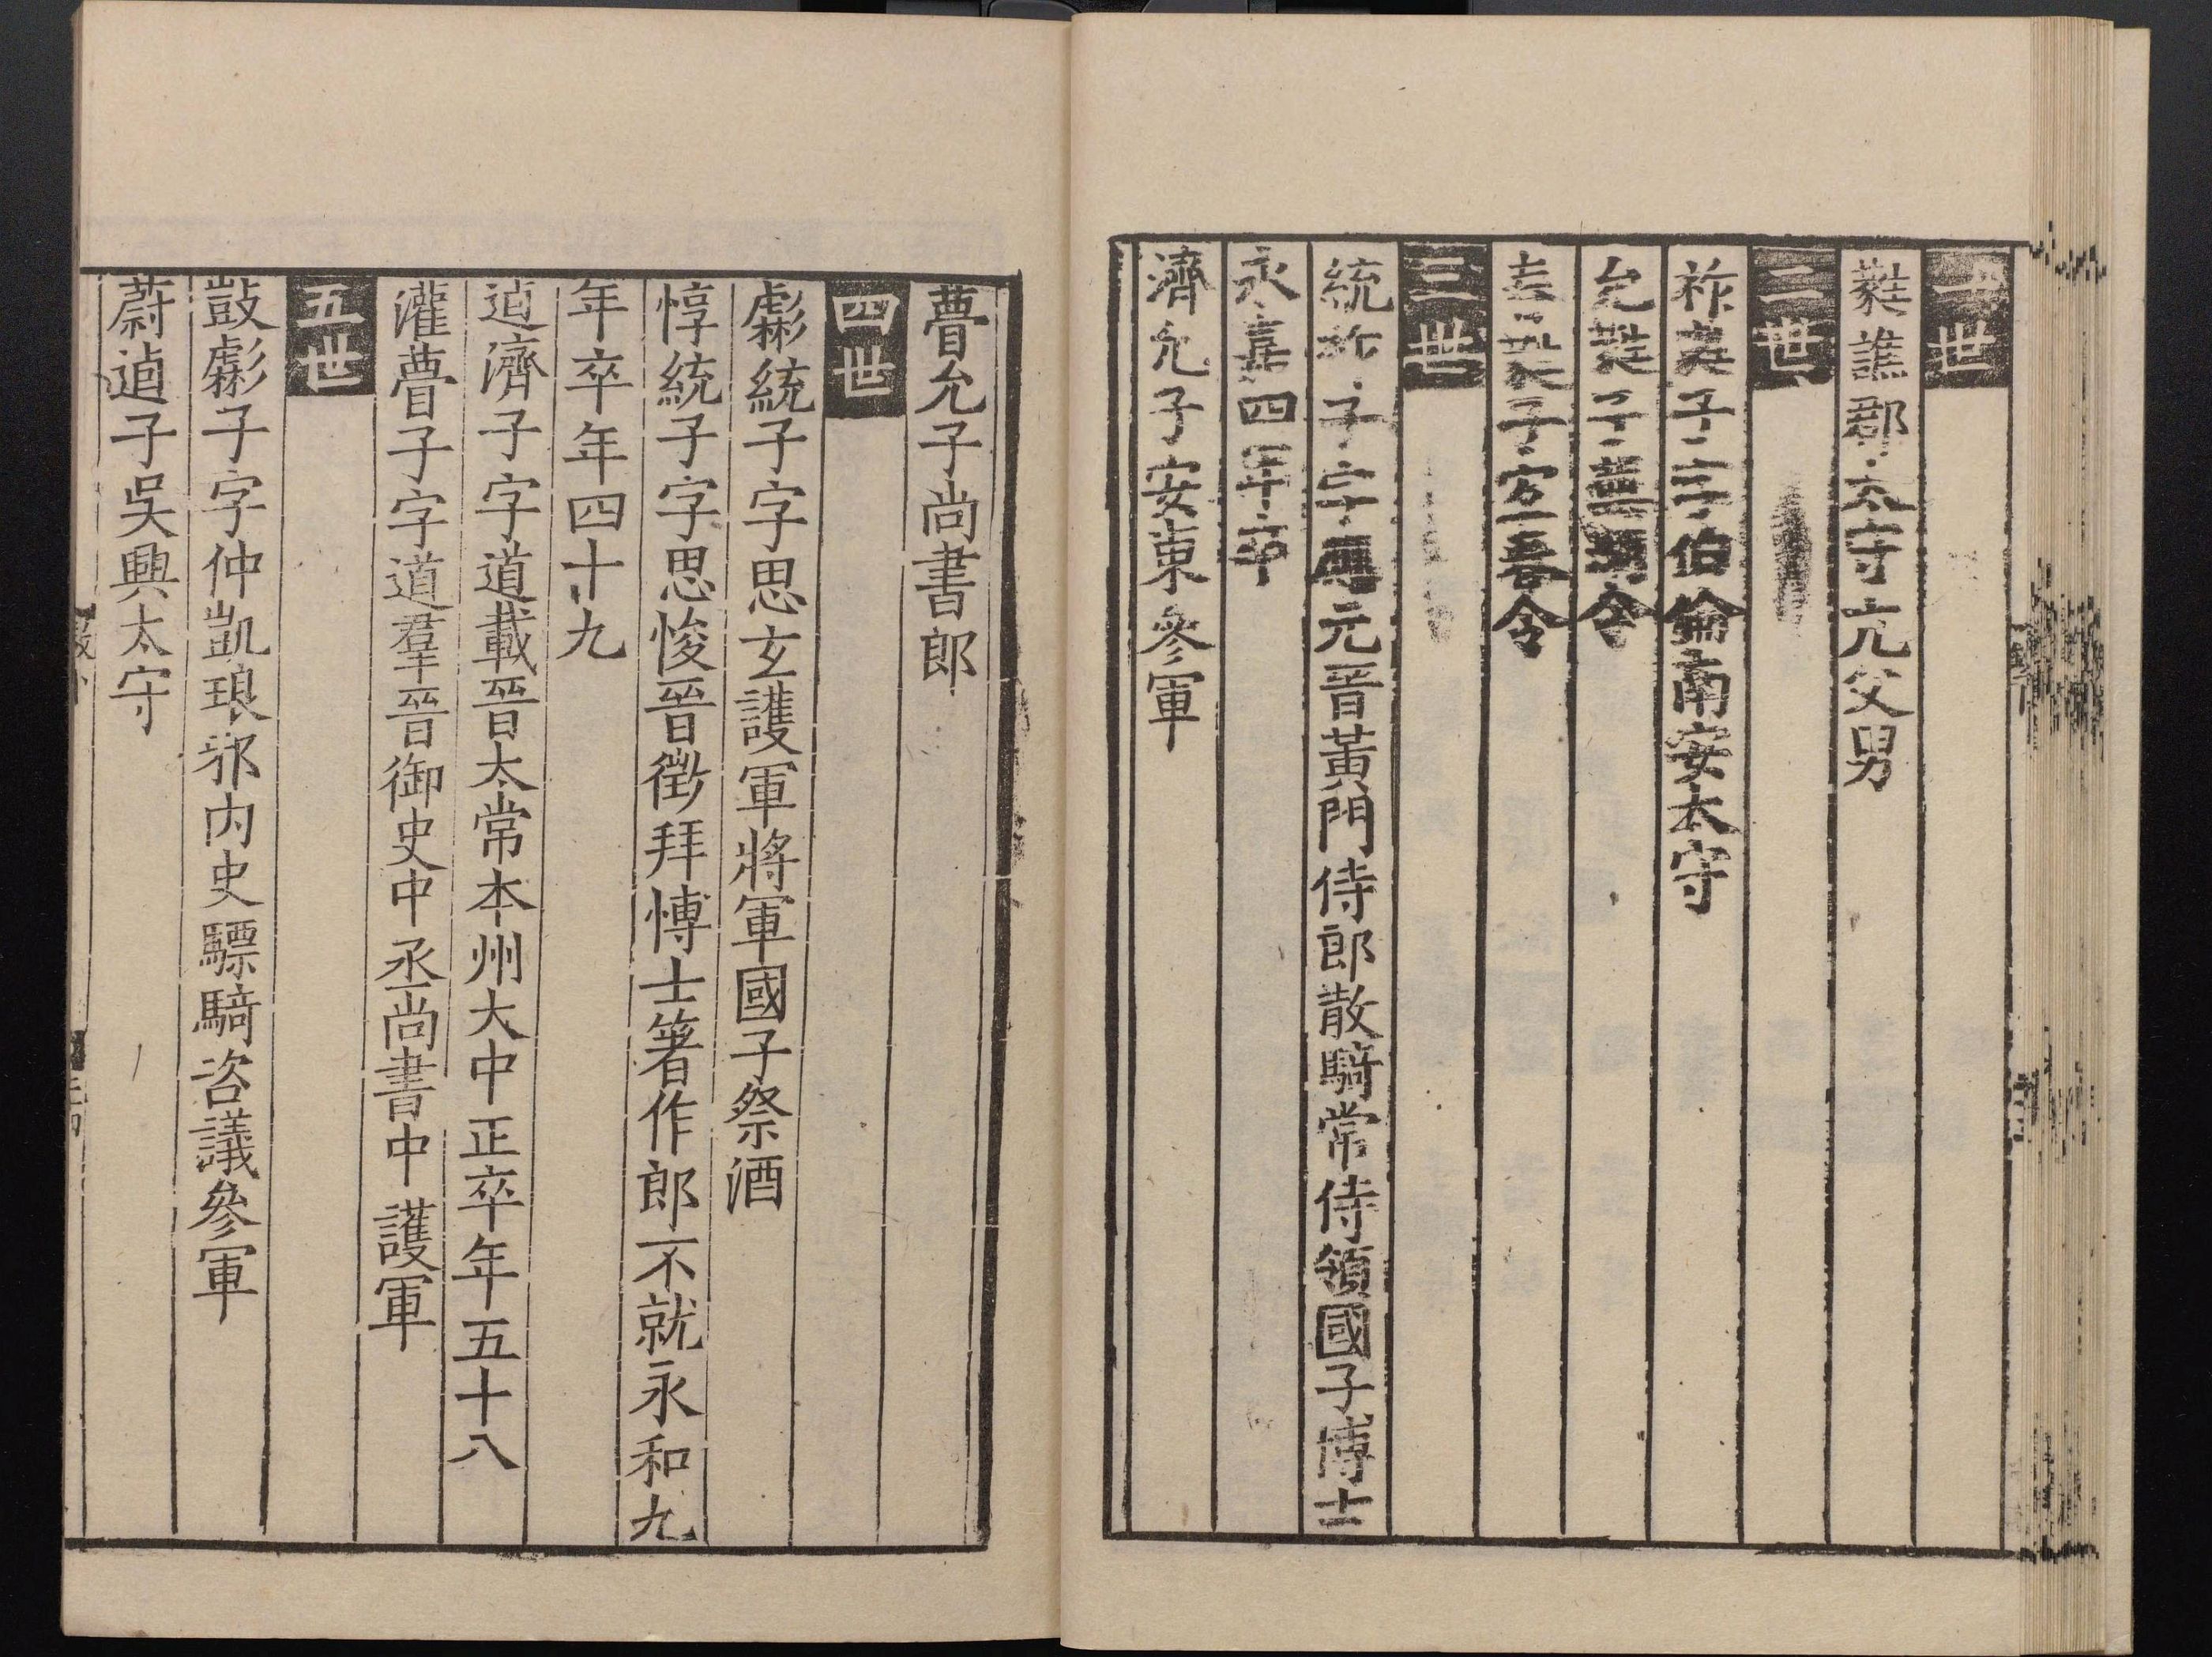 一世
蕤譙郡太守亢父男
二世
祚蕤子字伯倫南安太守
允蕤子蕪湖令
蕤子宜春令
三世
統祚子字應元晉黃門侍郎散騎常侍領國子博士
永嘉四年卒
濟允子安東參軍
瞢允子尚書郎
四世
虨統子字思玄護軍將軍國子祭酒
惇統子字思悛晉徵拜博士箸作郎不就永和九
年卒年四十九
逌濟子字道載晉太常本州大中正卒年五十八
灌瞢子字道羣晉御史中丞尚書中護軍
五世
敳虨子字仲凱琅邪內史驃騎咨議參軍
蔚逌子吳興太守